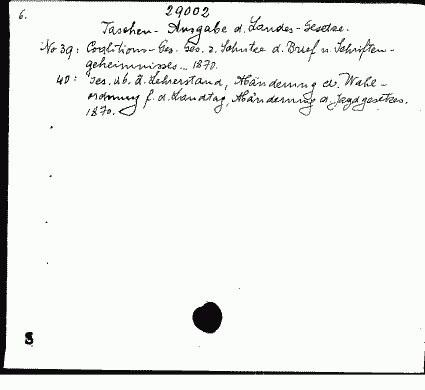 6. 29002
Taschen-Ausgabe d. Landes-Gesetze.
No 39: Coalitions-Ges. Ges. z. Schutze d. Brief u. Schriften-
geheimnisses... 1870.
40: Ges. üb. d. Lehrerstand, Abänderung d. Wahl-
ordnung f. d. Landtag, Abänderung d. Jagdgesetzes.
1870.
S